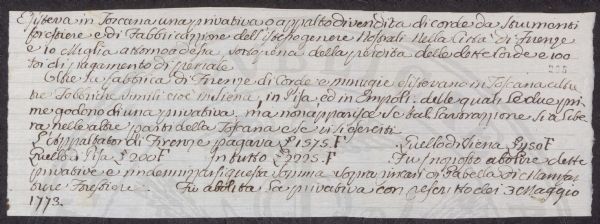 Esisteva in Toscana una privativa o appalto di vendita di corde da Strumenti
forestiere e di Fabbricazione dell'istesso genere Nostrali nella Città di Firenze
e 10 Miglia attorno della sotto pena della perdita delle dette Corde e 100
di pagamento di
Oltre la fabbrica di Firenze di Corde e minugie esistevano in Toscana altre
tre Fabbriche simili cioè in Siena, in Pisa, ed in Empoli. delle quali le due pri-
me godono di una privativa, ma non apparisce se tal contrattazione sia libe-
ra nelle altre parti della Toscana e se vi si eserciti
L'appaltator di Firenze pagava £ 1575. F Quello di Siena £ 450 F
Quello di Pisa £ 200 F In tutto £ 2225. F Fu proposto abolire dette
privative e indennizzarsi questa somma
ture Forestiere. Fu abolita la privativa con rescritto dei 3 Maggio
1773.